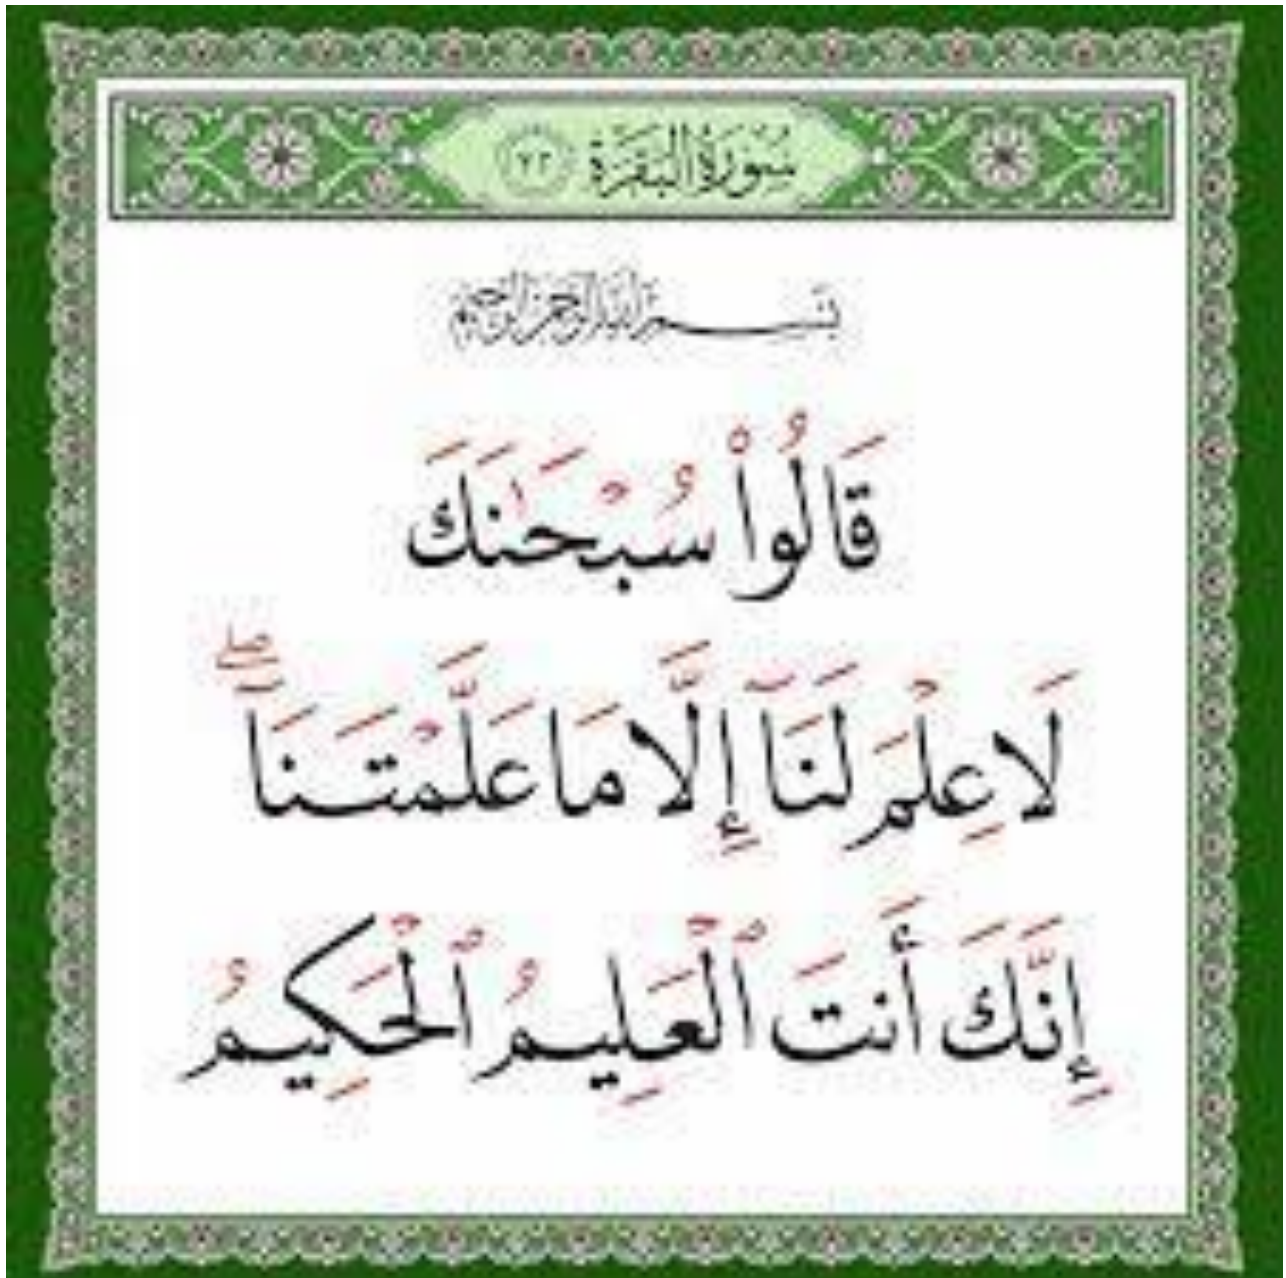 سُورَةُ البَقَرَة
بِسْمِ اللَّهِ الرَّحْمَٰنِ الرَّحِيمِ
قَالُواْ سُبْحَٰنَكَ
لَا عِلْمَ لَنَآ إِلَّا مَا عَلَّمْتَنَآۖ
إِنَّكَ أَنتَ ٱلْعَلِيمُ ٱلْحَكِيمُ